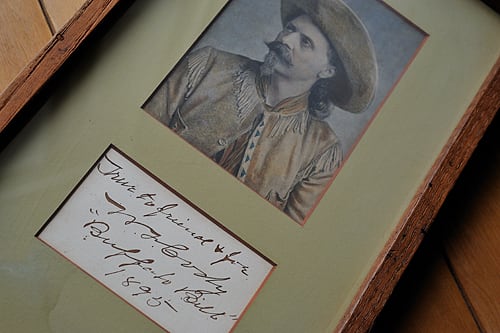 True to friend & foe.
W. F. Cody
"Buffalo Bill"
1895